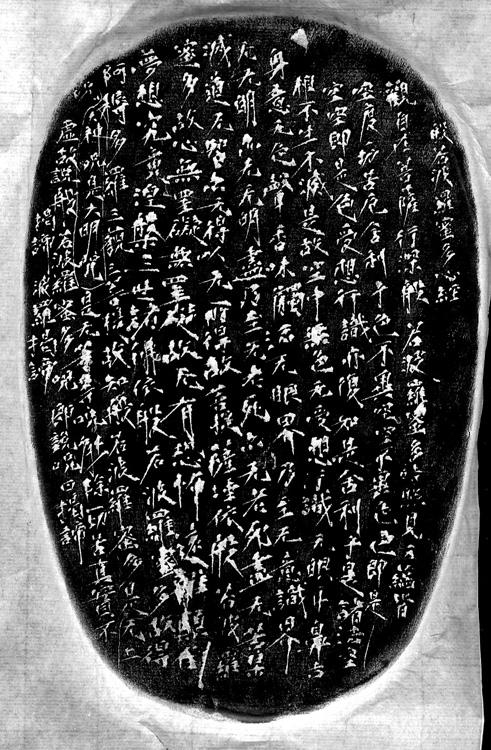 般若波羅蜜多心經
觀自在菩薩行深般若波羅蜜多時照見五蘊皆
空度一切苦厄舍利子色不異空空不異色色即是
空空即是色受想行識亦復如是舍利子是諸法空
相不生不滅是故空中無色无受想行識无眼耳鼻舌
身意无色聲香味觸法无眼界乃至无意識界
无无明亦无无明盡乃至无老死亦无老死盡无苦集
滅道无智亦无得以无所得故菩提薩埵依般若波羅
蜜多故心無罣礙無罣礙故无有恐怖遠離顛倒
夢想究竟涅槃三世諸佛依般若波羅蜜多故得
阿耨多羅三藐三菩提故知般若波羅蜜多是无上
神呪是大明呪是无等等呪能除一切苦真實不
虛故說般若波羅蜜多呪即說呪曰揭諦
揭諦 波羅揭諦